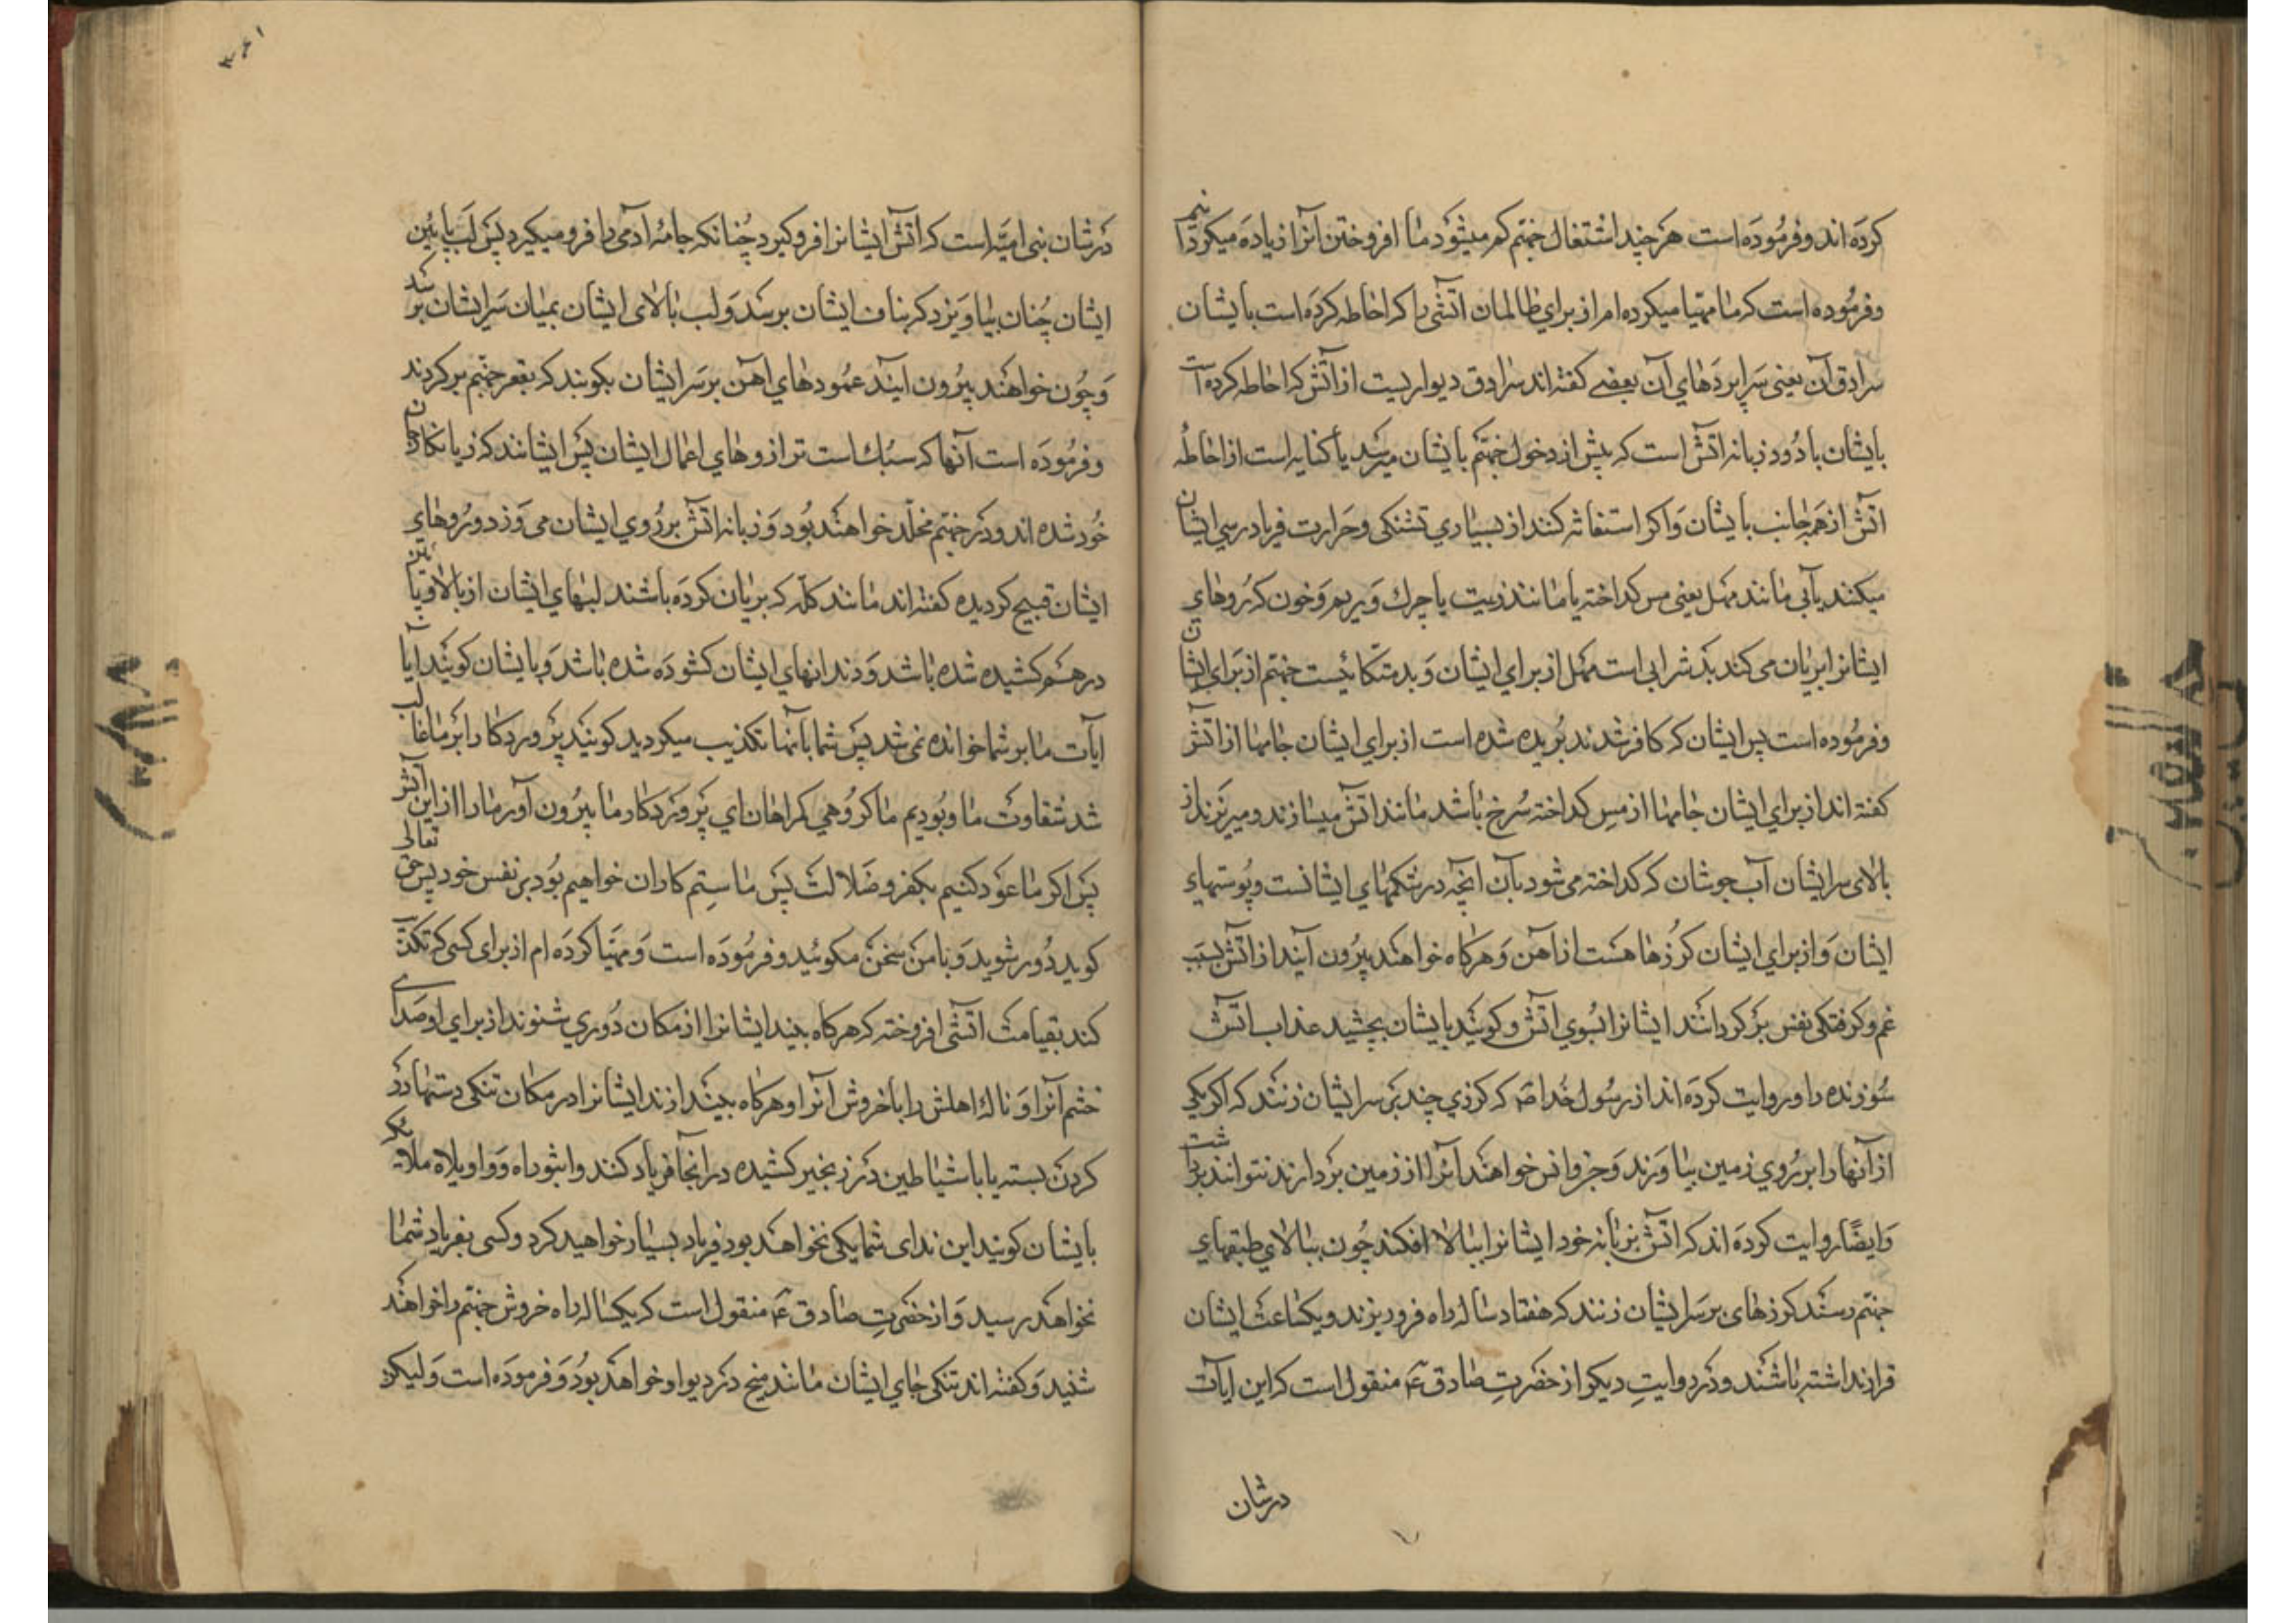 كرده اند وفرموده است هر چند اشتغال جهنم كم ميشود ما افروختن آنرا زياده ميكردانيم
وفرموده است كه ما مهيا ميكرده ام از براي ظالمان آتشى را كه احاطه كرده است بايشان
سرادق آن يعنى سراپردهاي آن بعضے كفته اند سرادق ديواريست از آتش كه احاطه كرده است
بايشان يا دود و زبانه آتش است كه پيش از دخول جهنم بايشان ميرسد يا كنايه است از احاطه
آتش از همه جانب بايشان و اكر استغاثه كنند از بسياري تشنكى وحرارت فرياد رسي ايشان
ميكنند بآبي مانند مهل يعنى مس كداخته يا مانند زيت يا چرك و ريم و خون كه روهاي
ايشانرا بريان مى كند بد شرابى است مهل از براي ايشان و بد متكائيست جهنم از براي ايشان
وفرموده است پس ايشان كه كافر شدند بريده شده است از براي ايشان جامها از آتش
كفته اند از براي ايشان جامها از مس كداخته سرخ باشد مانند آتش ميسازند و ميريزند از
بالاى سر ايشان آب جوشان كه كداخته مى شود بآن آنچه در شكمهاي ايشانست و پوستهاء
ايشان و از براي ايشان كرزها هست از آهن و هركاه خواهند بيرون آيند از آتش بسبب
غم و كرفتكى نفس بركردانند ايشانرا بسوي آتش و كويند بايشان بچشيد عذاب آتش
سوزنده را و روايت كرده اند از رسول خدا صم كه كرزي چند بر سر ايشان زنند كه اكر يكى
از آنها را بر روي زمين بياورند و جن و انس خواهند آنرا از زمين بردارند نتوانند برداشت
و ايضًا روايت كرده اند كه آتش بزبانه خود ايشانرا ببالا افكند چون ببالاي طبقهاي
جهنم رسند كرزهاى بر سر ايشان زنند كه هفتاد ساله راه فرو ريزند و يكساعت ايشان
قرار نداشته باشند و در روايت ديكر از حضرت صادق ع منقول است كه اين آيات
در شان
در شان بنى اميه است كه آتش ايشانرا فرو كيرد چنانكه جامه آدمى را فرو ميكيرد پس لب پائين
ايشان چنان بياويزد كه بناف ايشان برسد و لب بالاى ايشان بميان سر ايشان برسد
و چون خواهند بيرون آيند عمودهاي آهن بر سر ايشان بكوبند كه بقعر جهنم بركردند
و فرموده است آنها كه سبك است ترازوهاي اعمال ايشان پس ايشانند كه زيانكاران
خود شده اند و در جهنم مخلد خواهند بود و زبانه آتش بر روي ايشان مى وزد و روهاي
ايشان قبيح كرديده كفته اند مانند كله كه بريان كرده باشند لبهاي ايشان از بالا و پائين
در هم كشيده شده باشد و دندانهاي ايشان كشوده شده باشد و بايشان كويند آيا
آيات ما بر شما خوانده نمى شد پس شما بآنها تكذيب ميكرديد كويند پروردكارا بر ما غالب
شد شقاوت ما و بوديم ما كروهى كمراهان اي پروردكار ما بيرون آور ما را از اين آتش
پس اكر ما عود كنيم بكفر و ضلالت پس ما ستم كاران خواهيم بود بر نفس خود پس حق تعالى
كويد دور شويد و با من سخن مكوئيد و فرموده است و مهيا كرده ام از براى كسى كه تكذيب
كند بقيامت آتشى افروخته كه هركاه بيند ايشانرا از مكان دوري شنوند از براي او صداے
خشم آنرا و ناله اهلش را يا خروش آنرا و هركاه بيندازند ايشانرا در مكان تنكى دستها در
كردن بسته يا با شياطين در زنجير كشيده در آنجا فرياد كنند واثبوراه و واويلاه ملائكه
بايشان كويند اين نداى شما يكى نخواهد بود فرياد بسيار خواهيد كرد و كسى بفرياد شما
نخواهد رسيد و از حضرت صادق ع منقول است كه يكساله راه خروش جهنم را خواهند
شنيد و كفته اند تنكى جاي ايشان مانند ميخ در ديوار خواهد بود و فرموده است و ليكن